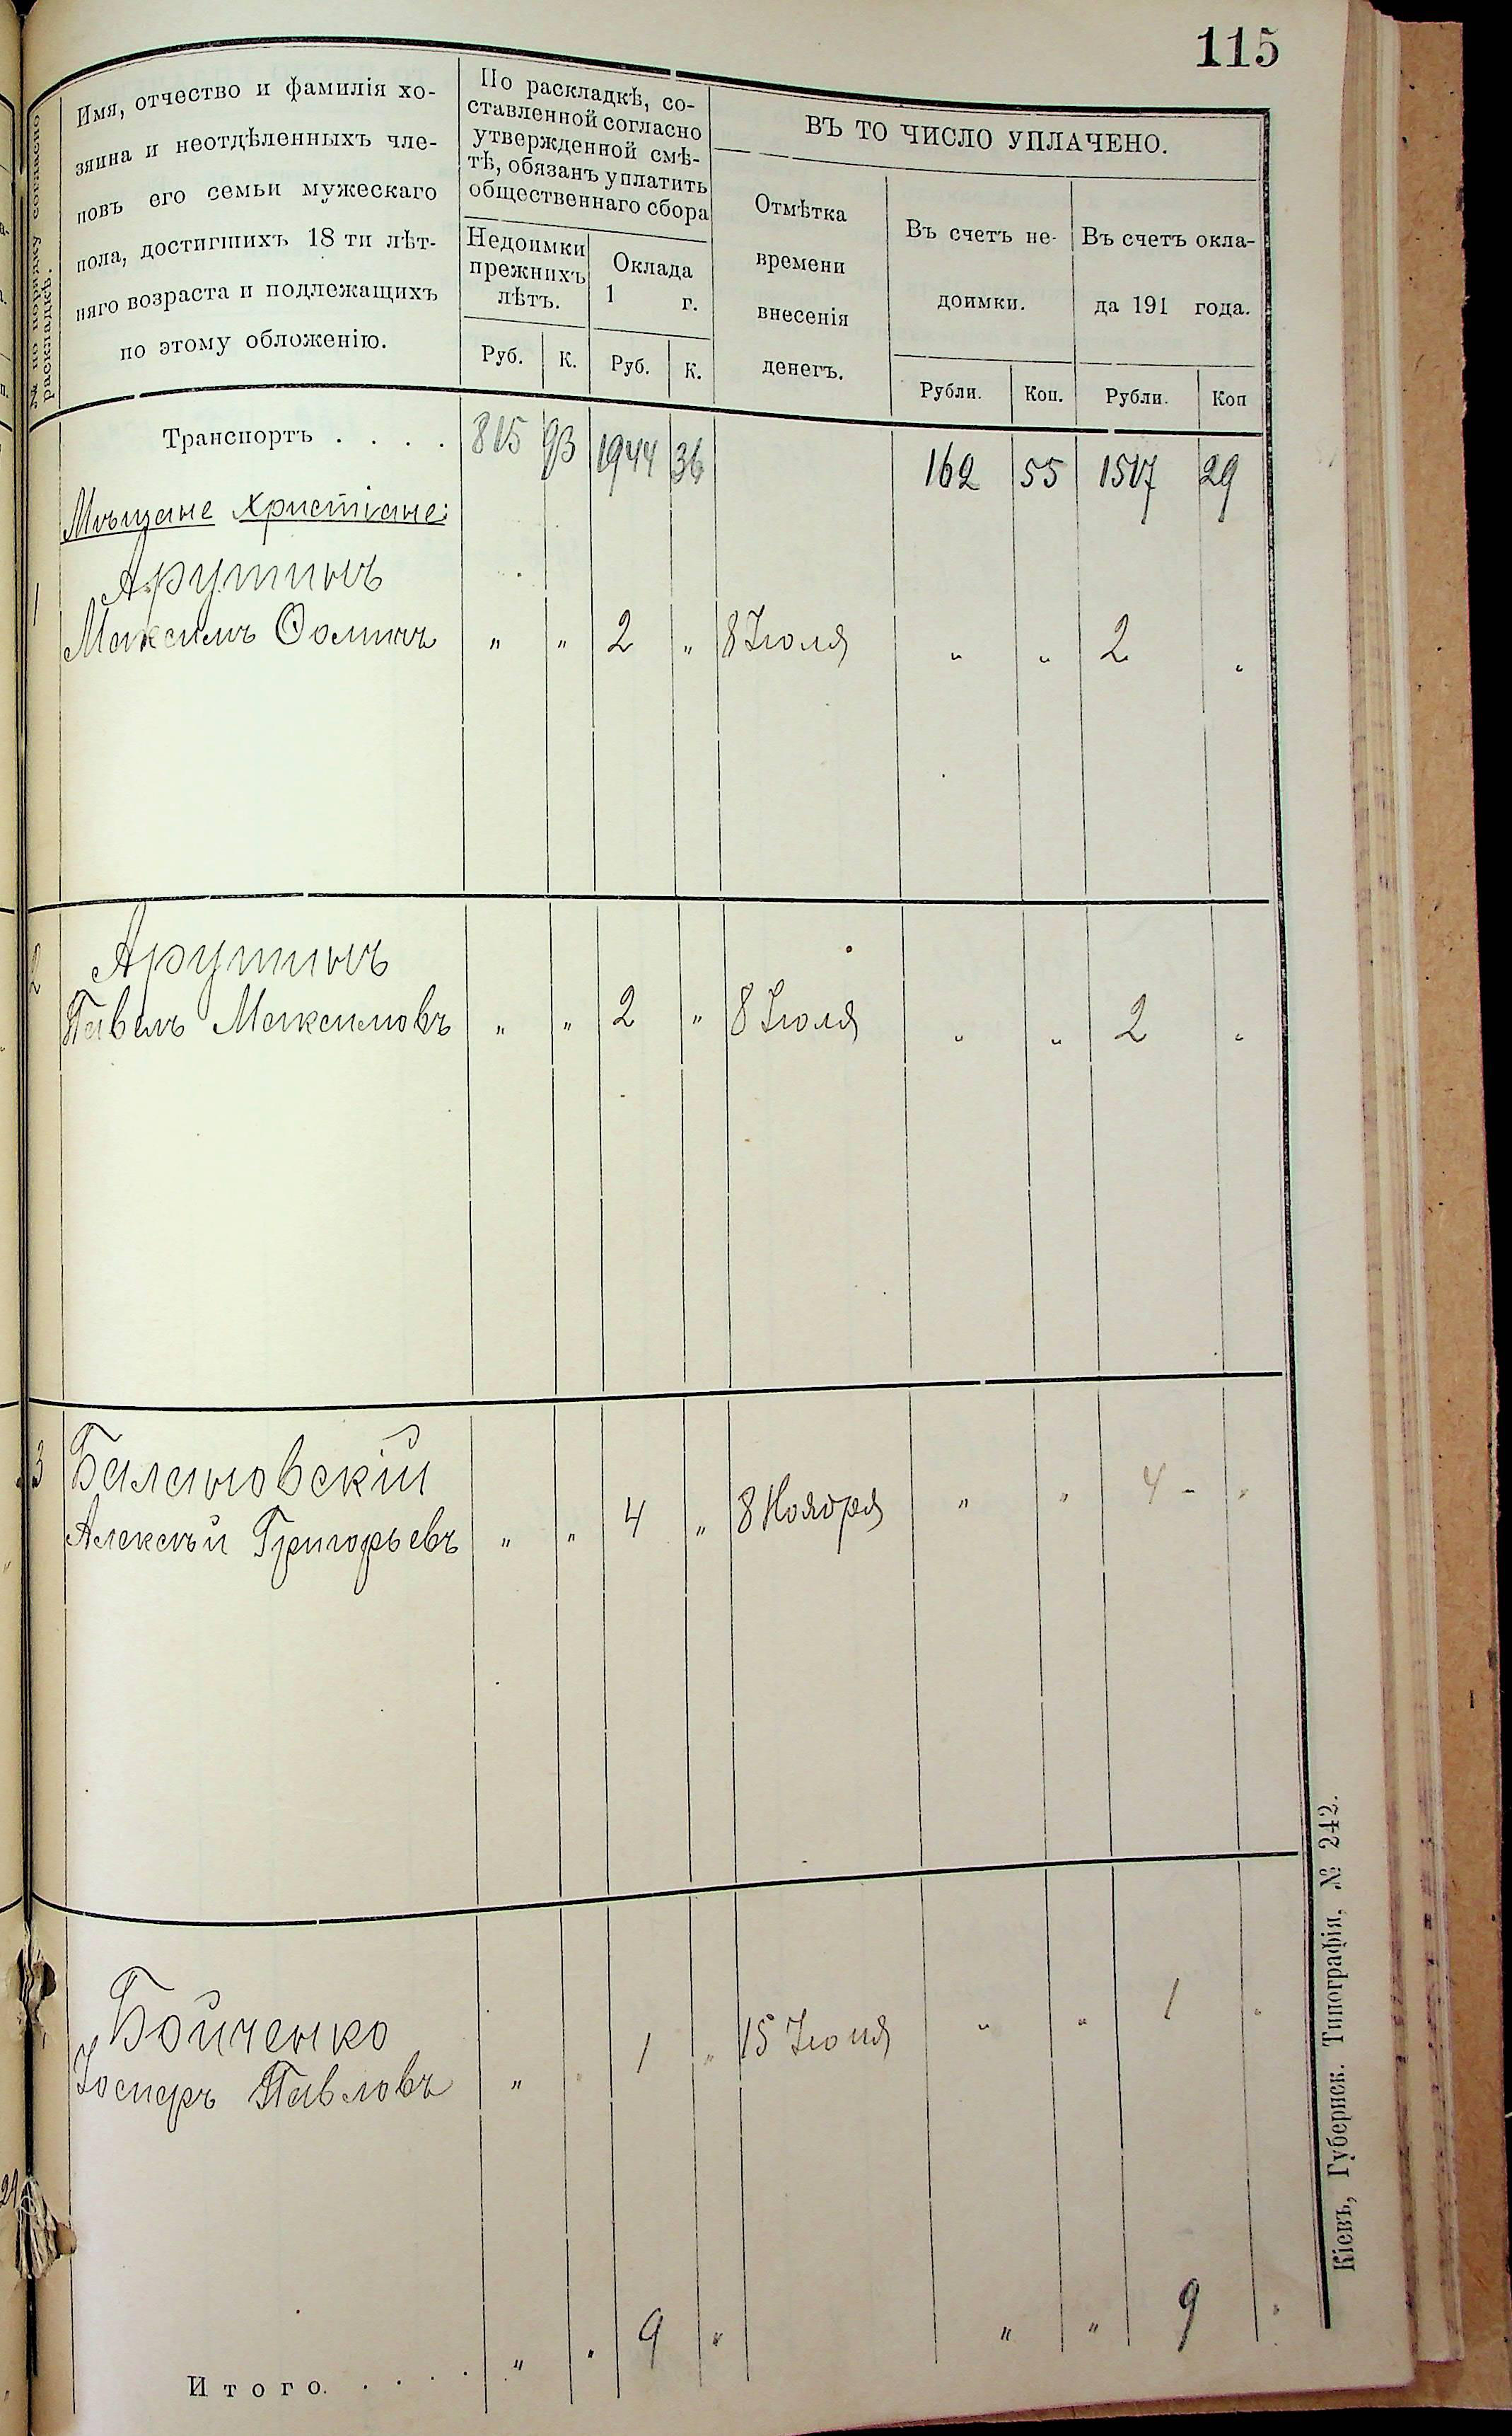 115
№ по порядку согласно
раскладкѣ.
Имя, отчество и фамилія хо-
зяина и неотдѣленныхъ чле-
новъ его семьи мужескаго
пола, достигшихъ 18 ти лѣт-
няго возраста и подлежащихъ
по этому обложенію.
По раскладкѣ, со-
ставленной согласно
утвержденной смѣ-
тѣ, обязанъ уплатить
общественнаго сбора
Недоимки
прежнихъ
лѣтъ.
Оклада
1 г.
Руб. К. Руб. К.
ВЪ ТО ЧИСЛО УПЛАЧЕНО.
Отмѣтка
времени
внесенія
денегъ.
Въ счетъ не-
доимки.
Въ счетъ окла-
да 191 года.
Рубли. Коп. Рубли. Коп
Транспортъ . . . . 815 93 1944 36 162 55 1517 29
Мѣщане Христіане:
1 Арутинъ
Максимъ Ѳоминъ " " 2 " 8 Іюля " " 2 "
2 Арутинъ
Павелъ Максимовъ " " 2 " 8 Іюля " " 2 "
3 Балановскій
Алексѣй Григорьевъ " " 4 " 8 Ноября " " 4 - "
Бойченко
Іосифъ Павловъ " " 1 " 15 Іюня " " 1 "
Итого. . . . . " " 9 " " " 9 "
Кіевъ, Губернск. Типографія, № 242.